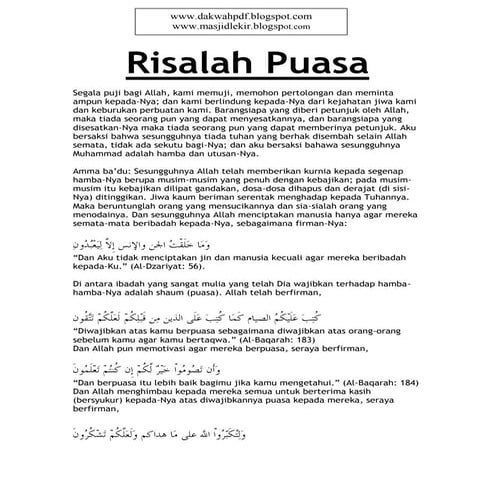 www.dakwahpdf.blogspot.com
www.masjidlekir.blogspot.com
Risalah Puasa
Segala puji bagi Allah, kami memuji, memohon pertolongan dan meminta
ampun kepada-Nya; dan kami berlindung kepada-Nya dari kejahatan jiwa kami
dan keburukan perbuatan kami. Barangsiapa yang diberi petunjuk oleh Allah,
maka tiada seorang pun yang dapat menyesatkannya, dan barangsiapa yang
disesatkan-Nya maka tiada seorang pun yang dapat memberinya petunjuk. Aku
bersaksi bahwa sesungguhnya tiada tuhan yang berhak disembah selain Allah
semata, tidak ada sekutu bagi-Nya; dan aku bersaksi bahawa sesungguhnya
Muhammad adalah hamba dan utusan-Nya.
Amma ba'du: Sesungguhnya Allah telah memberikan kurnia kepada segenap
hamba-Nya berupa musim-musim yang penuh dengan kebajikan; pada musim-
musim itu kebajikan dilipat gandakan, dosa-dosa dihapus dan derajat (di sisi-
Nya) ditinggikan. Jiwa kaum beriman serentak menghadap kepada Tuhannya.
Maka beruntunglah orang yang mensucikannya dan sia-sialah orang yang
menodainya. Dan sesungguhnya Allah menciptakan manusia hanya agar mereka
semata-mata beribadah kepada-Nya, sebagaimana firman-Nya:
وَمَا خَلَقْتُ الجِن والإنس إلاَّ لِيَعْبُدُونِ
“Dan Aku tidak menciptakan jin dan manusia kecuali agar mereka beribadah
kepada-Ku.” (Al-Dzariyat: 56).
Di antara ibadah yang sangat mulia yang telah Dia wajibkan terhadap hamba-
hamba-Nya adalah shaum (puasa). Allah telah berfirman,
كُتِبَ عَلَيْكُمُ الصيام كَمَا كُتِبَ عَلَى الذين مِن قَبْلِكُمْ لَعَلَّكُمْ تَتَّقُون
“Diwajibkan atas kamu berpuasa sebagaimana diwajibkan atas orang-orang
sebelum kamu agar kamu bertaqwa.” (Al-Baqarah: 183)
Dan Allah pun memotivasi agar mereka berpuasa, seraya berfirman,
وَأَن تَصُومُواْ خَيْرٌ لَّكُمْ إِن كُنتُمْ تَعْلَمُونَ
“Dan berpuasa itu lebih baik bagimu jika kamu mengetahui.” (Al-Baqarah: 184)
Dan Allah menghimbau kepada mereka semua untuk berterima kasih
(bersyukur) kepada-Nya atas diwajibkannya puasa kepada mereka, seraya
berfirman,
وَلِتُكَبِّرُواْ اللَّهَ على مَا هداكم وَلَعَلَّكُمْ تَشْكُرُونَ